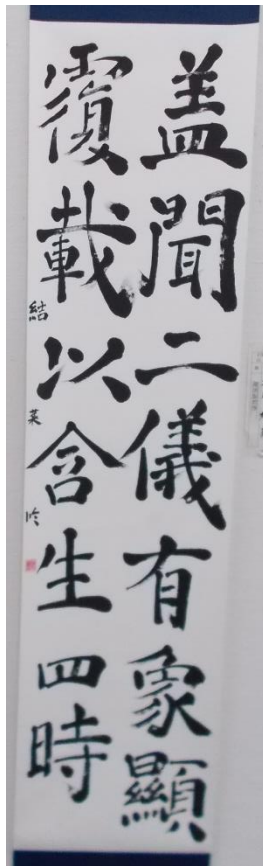 盖聞二儀有象顯
覆載以含生四時